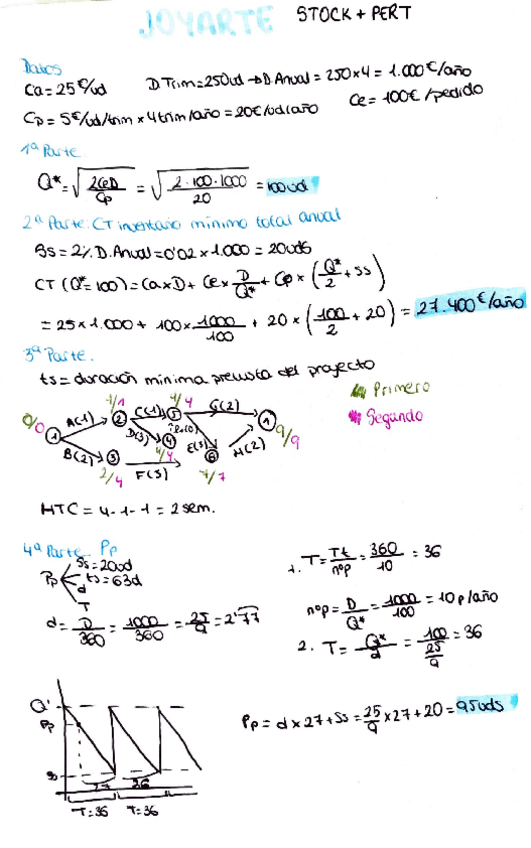 JOYARTE STOCK + PERT
Datos
Ca = 25€/ud D Trim = 250ud → D. Anual = 250 x 4 = 1.000 €/año
Cp = 5€/ud/trim x 4 trim/año = 20€/ud/año Ce = 100€/pedido
1ª Parte.
Q* = √(2CeD / Cp) = √(2·100·1000 / 20) = 100ud
2ª Parte: CT inventario mínimo total anual
Ss = 2% D. Anual = 0'02 x 1.000 = 20uds
CT (Q* = 100) = Ca x D + Ce x D/Q* + Cp x (Q*/2 + ss)
= 25 x 1.000 + 100 x 1000/100 + 20 x (100/2 + 20) = 27.400€/año
3ª Parte.
ts = duración mínima prevista del proyecto
Primero
Segundo
0/0 1 A(1) 1/1 2 C(1) 4/4 5 G(2) 7 9/9
D(3) 4 4/4 E(3) 6 7/7 H(2)
B(2) 3 2/4 F(3)
HTC = 4-1-1 = 2 sem.
4ª Parte. Pp
Pp
Ss = 20ud
ts = 63d
d
T
d = D/360 = 1000/360 = 25/9 = 2'77
1. T = Tt/nºp = 360/10 = 36
nºp = D/Q* = 1000/100 = 10 p/año
2. T = Q*/d = 100/(25/9) = 36
Q'
Pp
ss
27 36
T=36 T=36
Pp = d x 27 + Ss = 25/9 x 27 + 20 = 95uds